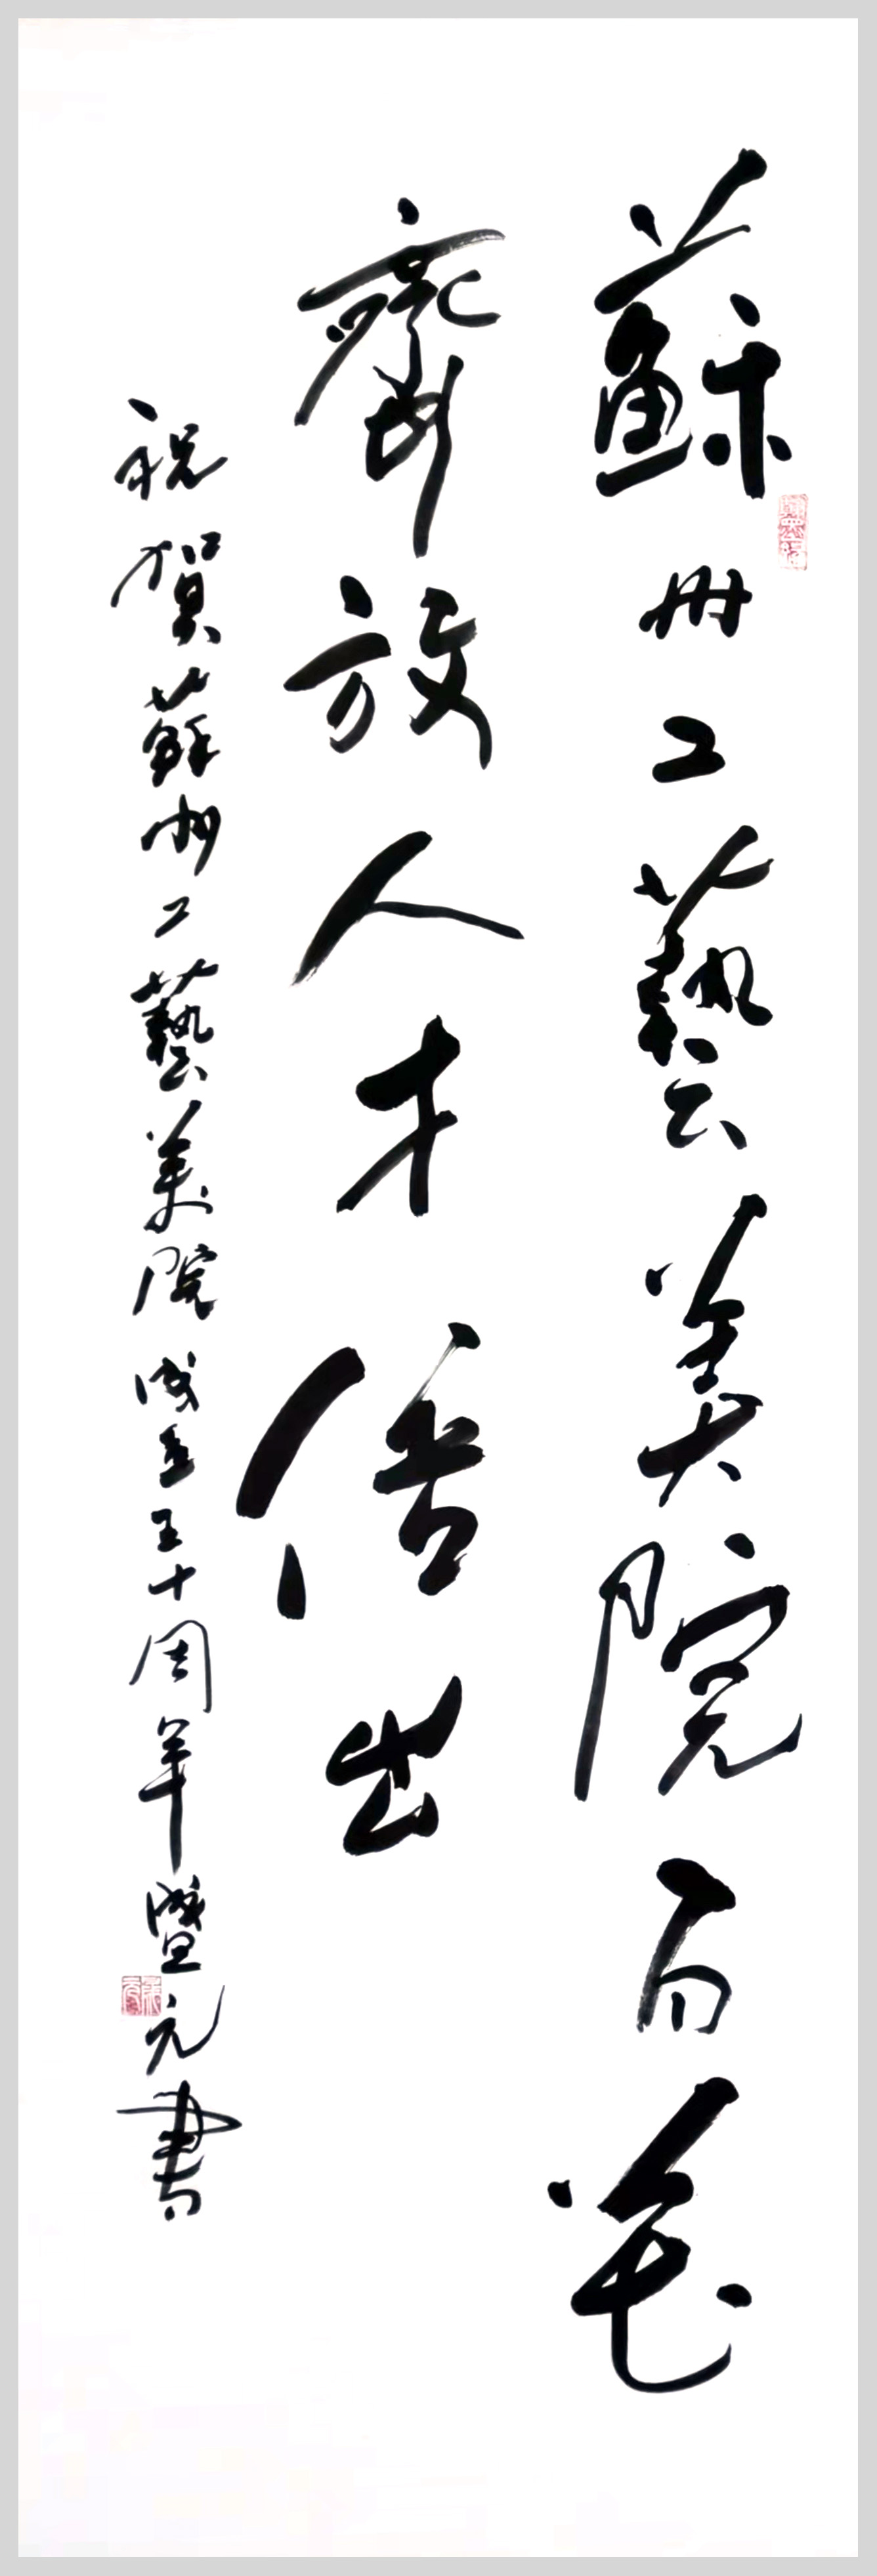 蘇州工藝美院百花
齊放人才倍出
祝賀蘇州工藝美院成立五十周年元書